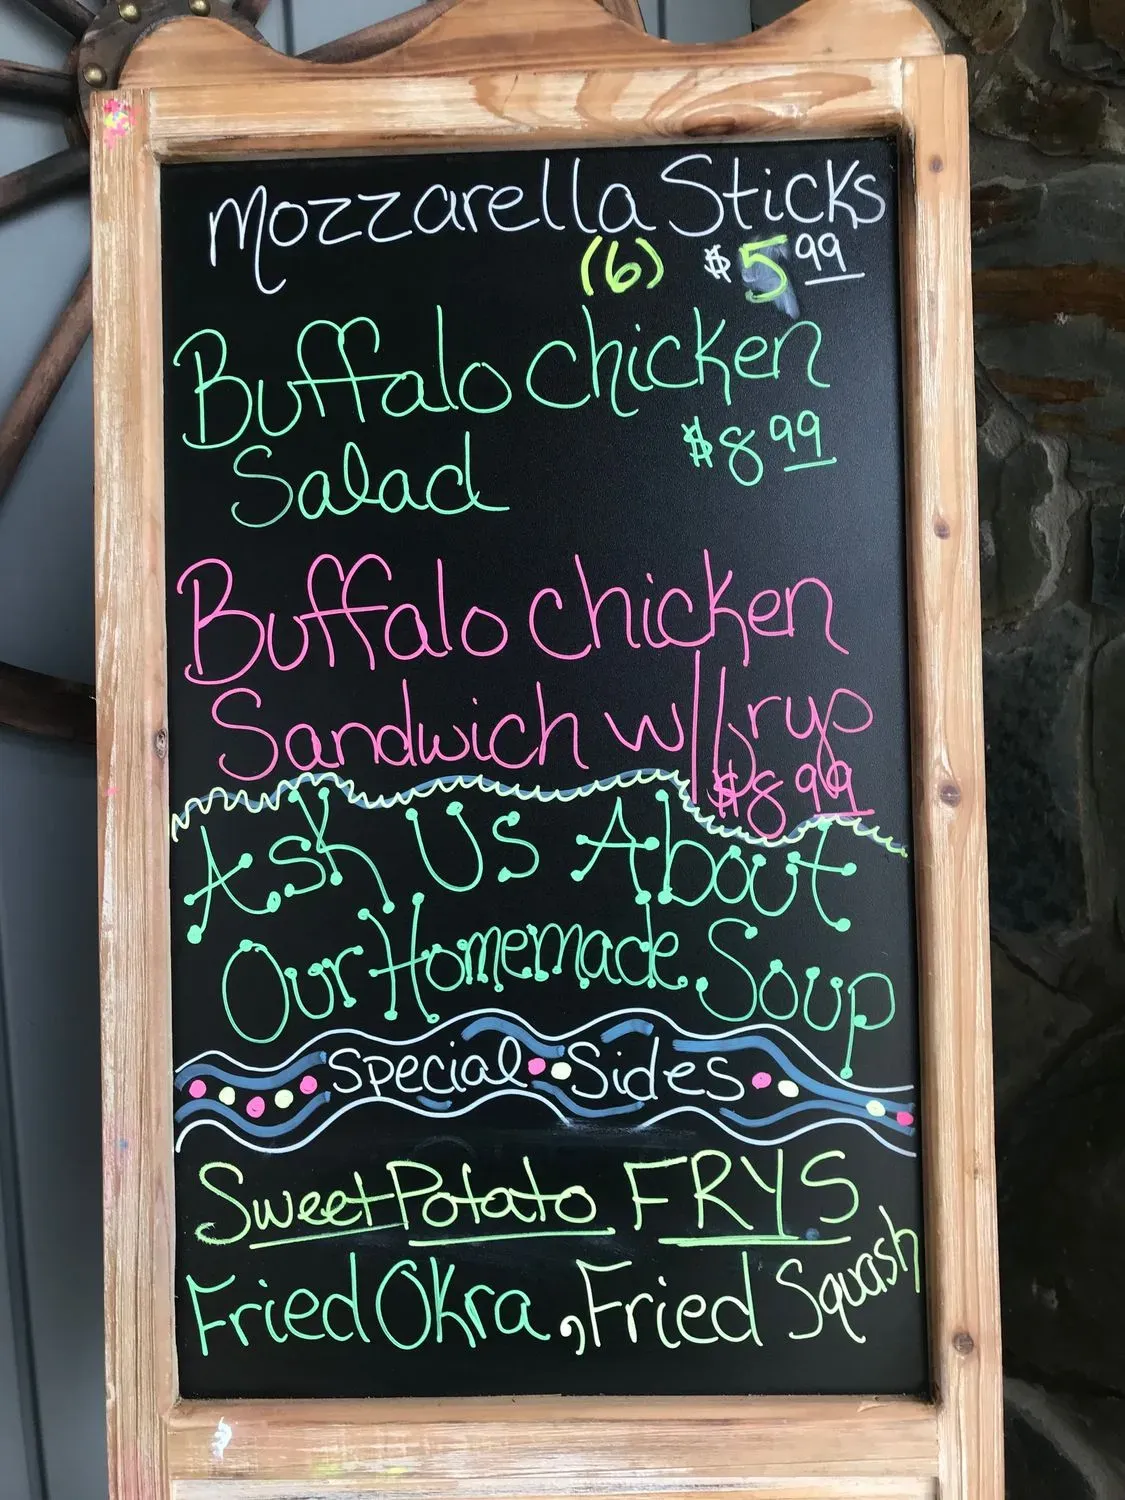 Mozzarella Sticks
(6) $5.99
Buffalo chicken
Salad $8.99
Buffalo chicken
Sandwich w/ frys
$8.99
Ask Us About
Our Homemade Soup
Special Sides
Sweet Potato FRYS
Fried Okra, Fried Squash